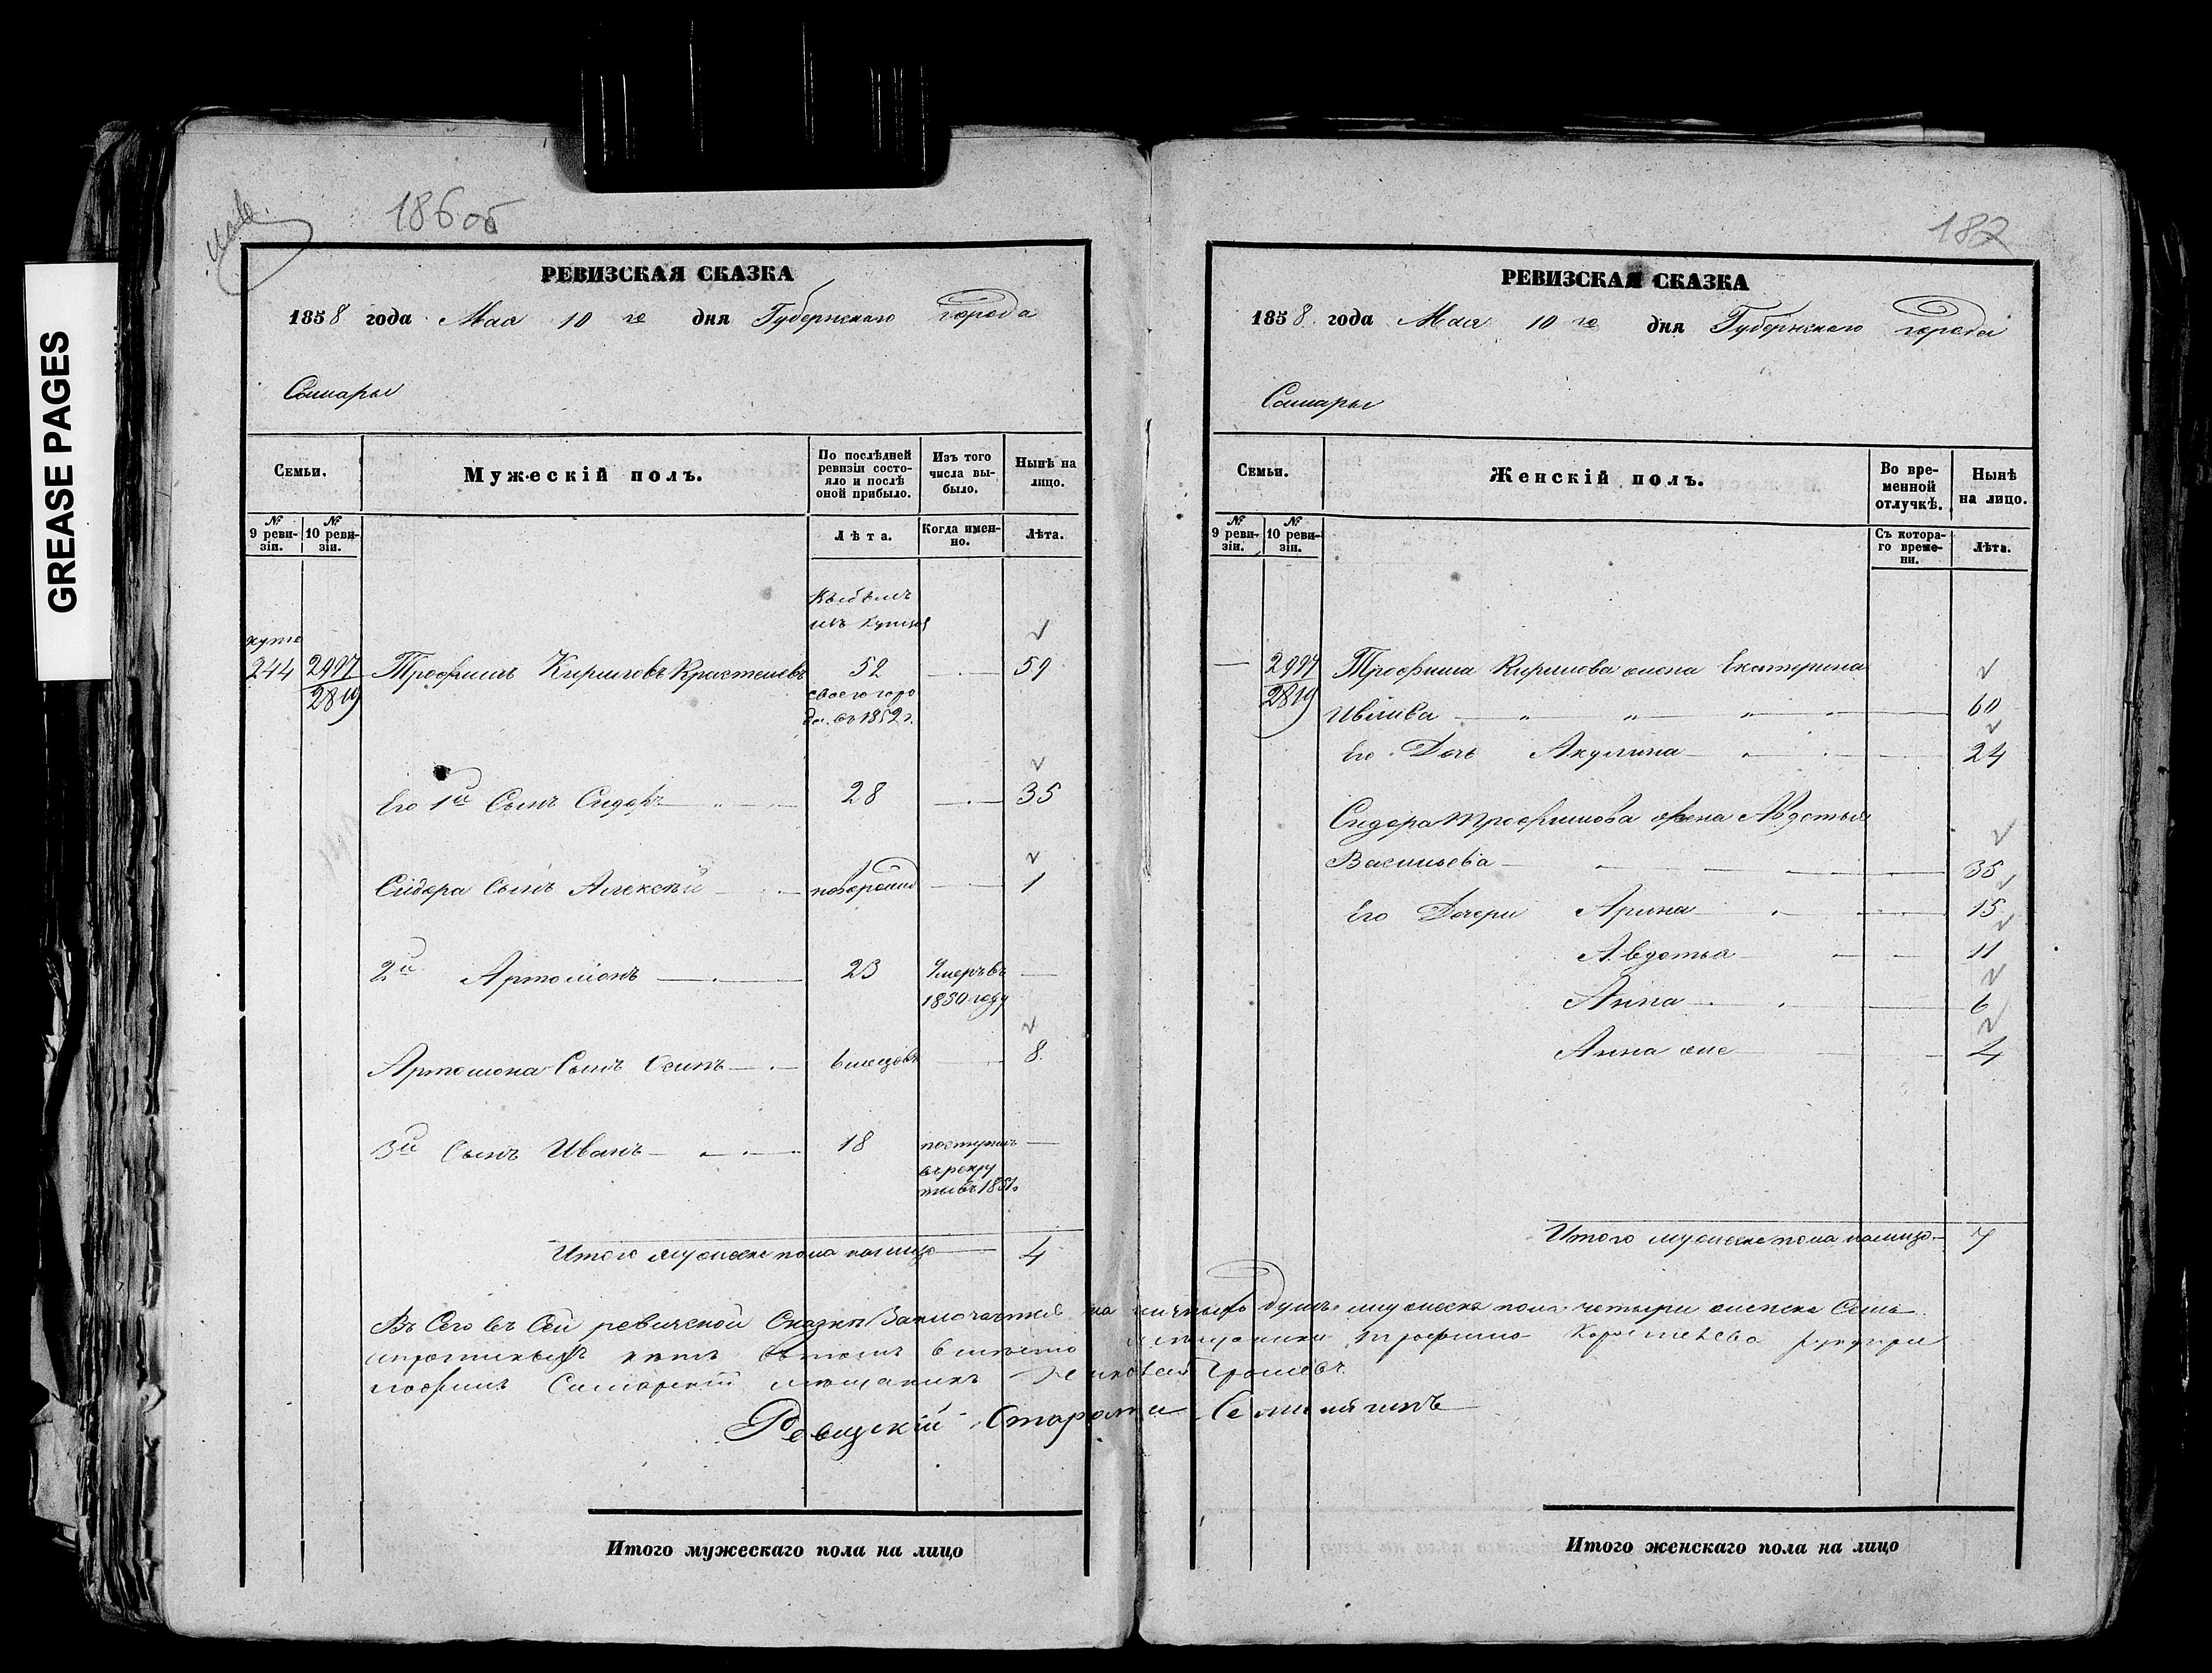 GREASE PAGES
186 об
РЕВИЗСКАЯ СКАЗКА
1858 года Мая 10 го дня Губернскаго города
Самары
Семьи.
Мужескій полъ.
По послѣдней ревизіи состояло и послѣ оной прибыло.
Изъ того числа выбыло.
Нынѣ на лицо.
№ 9 ревизіи.
№ 10 ревизіи.
Лѣта.
Когда именно.
Лѣта.
244 2997 Трофимъ Кириловъ 52 59
2819 своего горо
да въ 1852 г.
Его 1й Сынъ Сидоръ 28 35
Сидора Сынъ Алексѣй новорожд 1
2й Артомонъ 23 Умеръ въ
1850 году
Артомона Сынъ Осипъ 6 месцовъ 8
3й Сынъ Иванъ 18 поступилъ
въ рекру
ты въ 1851 г.
Итого мужеска пола налицо 4
Итого мужескаго пола на лицо
187
РЕВИЗСКАЯ СКАЗКА
1858 года Мая 10 го дня Губернскаго города
Самары
Семьи.
Женскій полъ.
Во временной отлучкѣ.
Нынѣ на лицо.
№ 9 ревизіи.
№ 10 ревизіи.
Съ котораго времени.
Лѣта.
2997 Трофима Кирилова жена Екатерина
2819 Ивлива 60
Его Дочь Акулина 24
Сидора Трофимова жена Авдотья
Васильева 35
Его Дочери Арина 15
Авдотья 11
Анна 6
Анна же 4
Итого мужеска пола налицо 7
Въ Сего въ Сей ревизской Сказки Заключается на личныхъ душъ мужеска пола четыри женска Семь
Самарскій мещанинъ
Ревизскій Староста
Итого женскаго пола на лицо